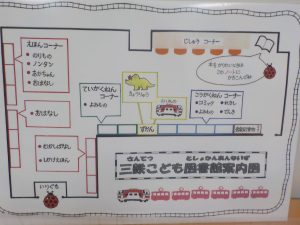 じしゅう コーナー
えほんコーナー
のりもの
ノンタン
あかちゃん
おはなし
ていがくねん
コーナー
よみもの
きょうりゅう
のりもの
ずかん
こうがくねん
コーナー
コミック
よみもの
れきし
でんき
おはなし
むかしばなし
しかけえほん
いりぐち
さんてつ としょかんあんないず
三鉄こども図書館案内図